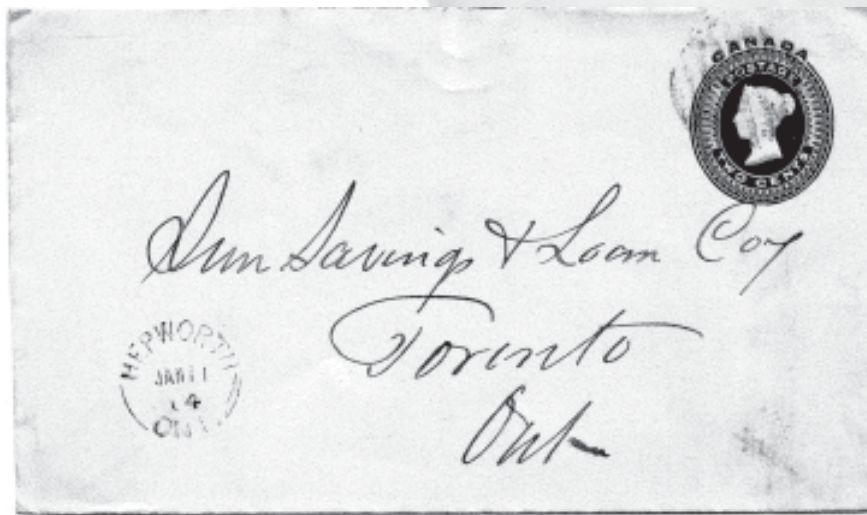 CANADA
POSTAGE
TWO CENTS
Sun Savings & Loan Coy
Toronto
Ont
HEPWORTH
JAN 11
14
ONT